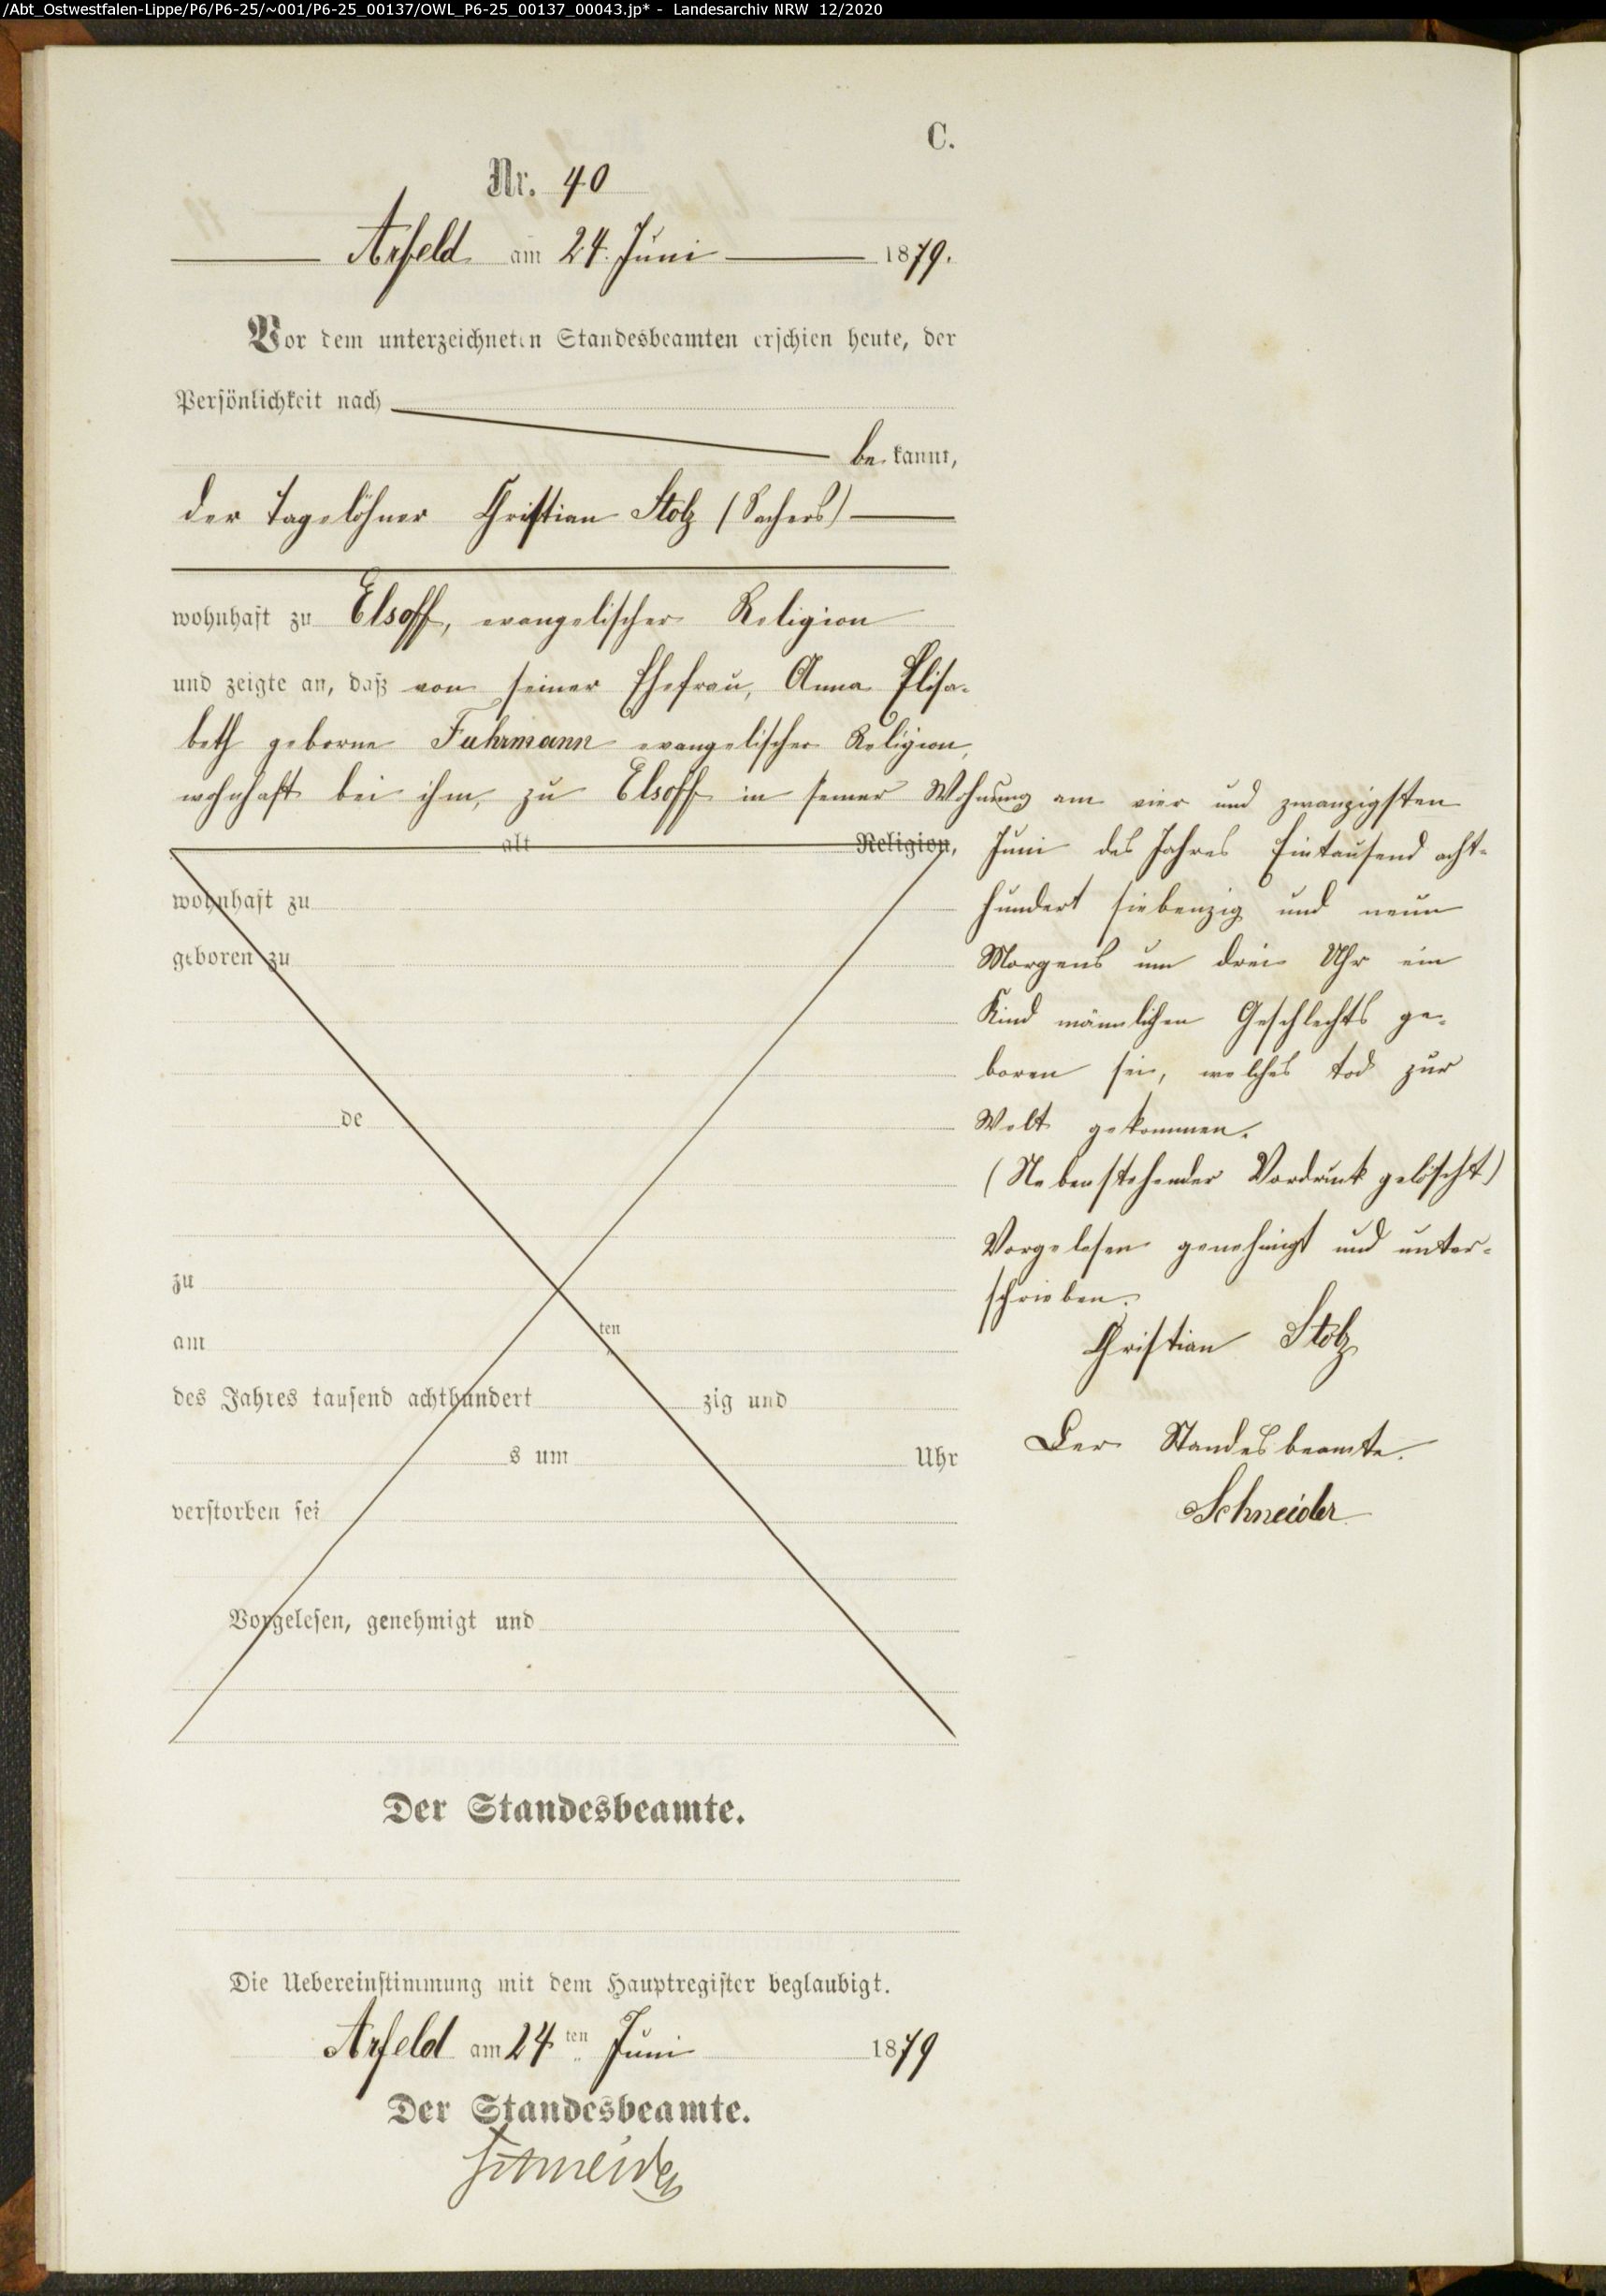 /Abt_Ostwestfalen-Lippe/P6/P6-25/~001/P6-25_00137/OWL_P6-25_00137_00043.jp* - Landesarchiv NRW 12/2020
C.
Nr. 40
Arfeld am 24. Juni 1879.
Vor dem unterzeichneten Standesbeamten erschien heute, der
Persönlichkeit nach
be kannt,
der Tagelöhner Christian Stolz (Sachers)
wohnhaft zu Elsoff, evangelischer Religion
und zeigte an, daß von seiner Ehefrau, Anna Elisa-
beth geborne Fuhrmann evangelischer Religion,
wohnhaft bei ihm, zu Elsoff in seiner Wohnung am vier und zwanzigsten
alt Religion,
wohnhaft zu
geboren zu
de
zu
am ten
des Jahres tausend achthundert zig und
s um Uhr
verstorben sei
Vorgelesen, genehmigt und
Juni des Jahres Eintausend acht-
hundert siebenzig und neun
Morgens um drei Uhr ein
Kind männlichen Geschlechts ge-
boren sei, welches tod zur
Welt gekommen.
(Nebenstehender Vordruck gelöscht)
Vorgelesen genehmigt und unter-
schrieben.
Christian Stolz
Der Standesbeamte.
Schneider
Der Standesbeamte.
Die Uebereinstimmung mit dem Hauptregister beglaubigt.
Arfeld am 24 ten Juni 1879
Der Standesbeamte.
Schneider